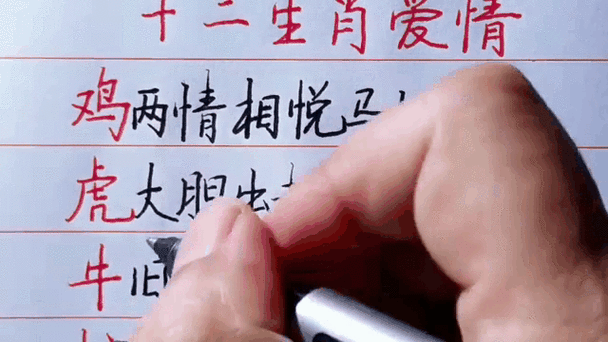 十二生肖爱情
鸡两情相悦马
虎大胆出
牛旧